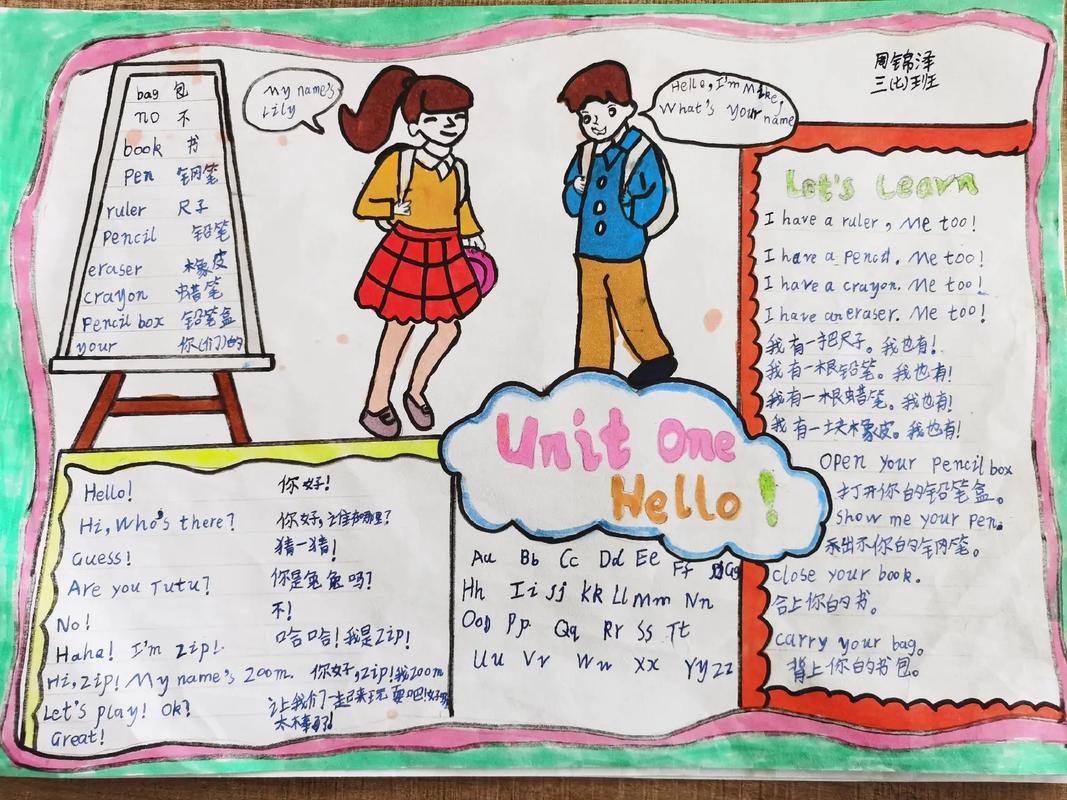 周锦泽
三(七)班
My name's
Lily
Hello, I'm Mike,
What's your name
bag 包
no 不
book 书
pen 钢笔
ruler 尺子
pencil 铅笔
eraser 橡皮
crayon 蜡笔
pencil box 铅笔盒
your 你(们)的
Unit One
Hello!
Let's Learn
I have a ruler, Me too!
I have a pencil. Me too!
I have a crayon. Me too!
I have an eraser. Me too!
我有一把尺子。我也有!
我有一根铅笔。我也有!
我有一根蜡笔。我也有!
我有一块橡皮。我也有!
Open your pencil box
打开你的铅笔盒。
show me your pen.
示出示你的钢笔。
close your book.
合上你的书。
carry your bag.
背上你的书包。
Hello! 你好!
Hi, Who's there? 你好,让谁在哪里?
Guess! 猜一猜!
Are you Tutu? 你是兔兔吗?
No! 不!
Haha! I'm Zip! 哈哈!我是Zip!
Hi, Zip! My name's Zoom. 你好,Zip!我Zoom
Let's play! Ok? 让我们一起来玩耍吧!好
Great! 太棒了!
Aa Bb Cc Dd Ee Ff Gg
Hh Ii Jj Kk Ll Mm Nn
Oo Pp Qq Rr Ss Tt
Uu Vv Ww Xx Yy Zz